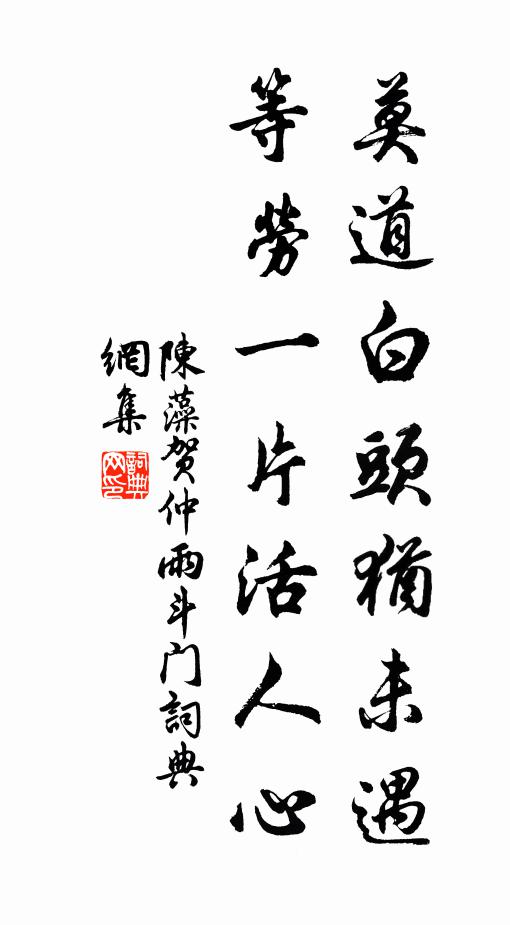 莫道白頭猶未遇
等勞一片活人心
陳藻賀仲雨斗门詞典
網集
詞典
网印